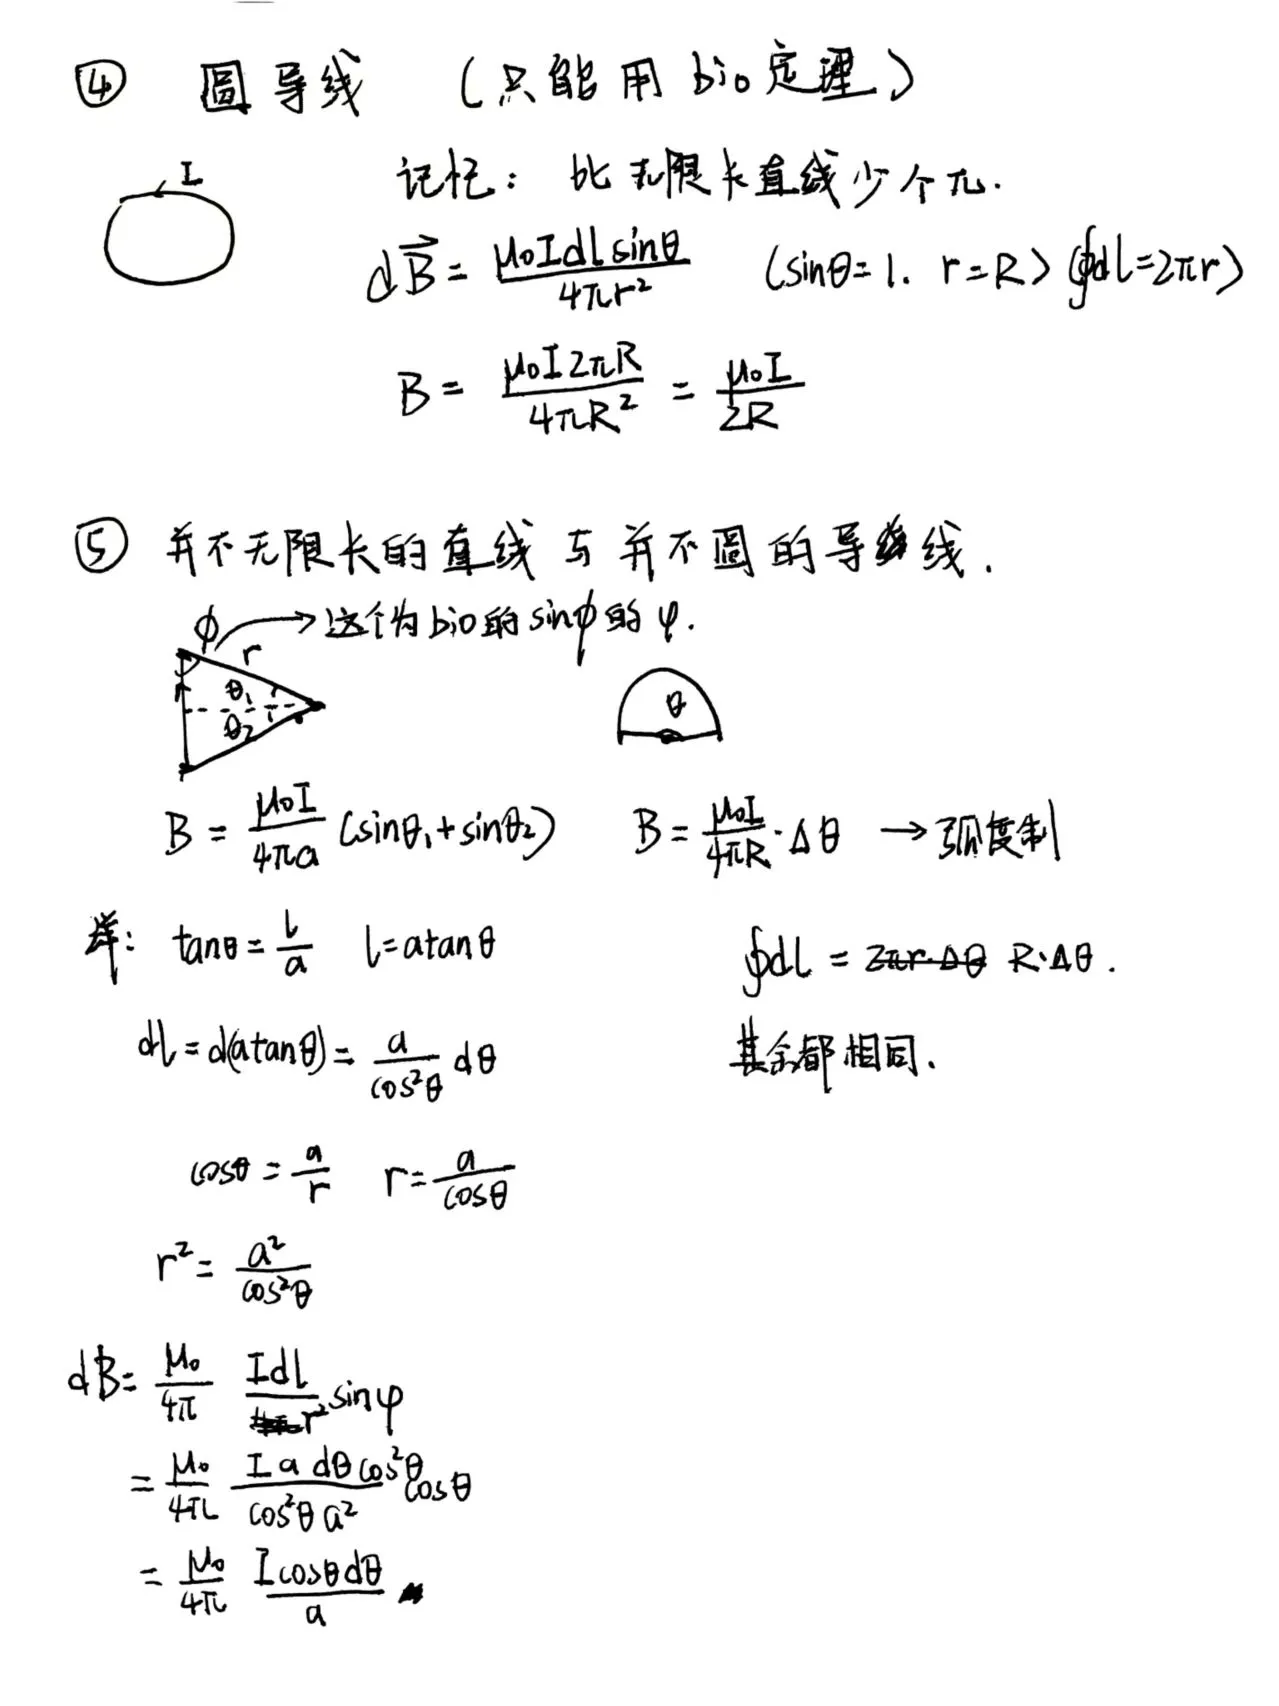 ④ 圆导线 (只能用bio定理)
I
记忆: 比无限长直线少个π.
dB⃗ = μ₀Idlsinθ / 4πr² (sinθ=1. r=R) (∮dl=2πr)
B = μ₀I2πR / 4πR² = μ₀I / 2R
⑤ 并不无限长的直线与并不圆的导线.
ϕ → 这个为bio的sinφ的φ.
r
θ₁
θ₂
θ
B = μ₀I / 4πa (sinθ₁+sinθ₂)
B = μ₀I / 4πR · Δθ → 弧度制
tanθ = l / a l=atanθ
∮dl = 2πr·Δθ R·Δθ.
dl = d(atanθ) = a / cos²θ dθ
其余都相同.
cosθ = a / r r = a / cosθ
r² = a² / cos²θ
dB = μ₀ / 4π Idl / r² sinφ
= μ₀ / 4π I a dθ cos²θ / cos²θ a² cosθ
= μ₀ / 4π I cosθ dθ / a